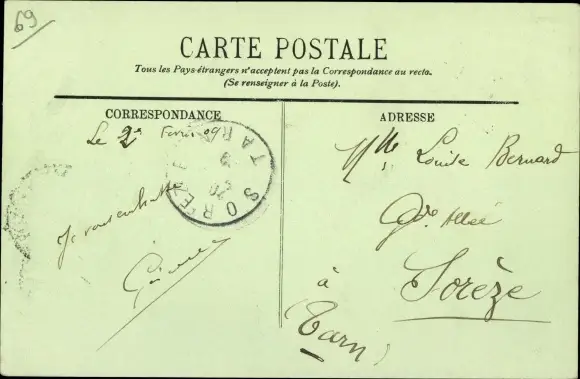 69
CARTE POSTALE
Tous les Pays étrangers n'acceptent pas la Correspondance au recto.
(Se renseigner à la Poste).
CORRESPONDANCE
ADRESSE
Le 2 Fevrier 09
SOREZE
TARN
Je vous embrasse
Mlle Louise Bernard
Gde Allée
à
Sorèze
(Tarn)